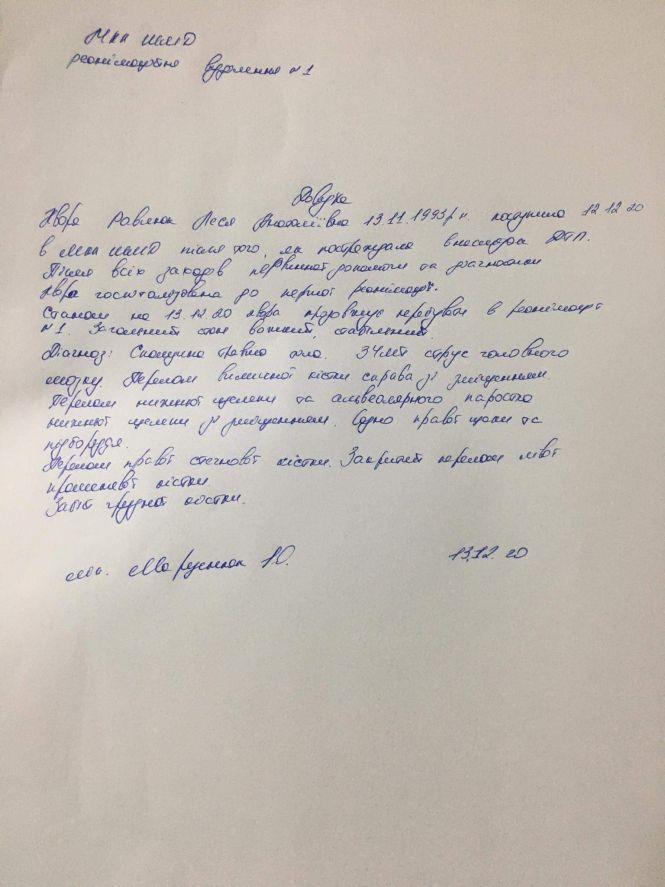 МКЛ ШМД
реанімаційне відділення №1
Довідка
Хвора Равлюк Леся 13.11.1993 р.н. поступила 12.12.20
в МКЛ ШМД після того, як постраждала внаслідок ДТП.
Після всіх заходів первинної допомоги та діагностики
хвора госпіталізована до першої реанімації.
Станом на 13.12.20 хвора продовжує перебувати в реанімації
№1. Загальний стан важкий, стабільний.
Діагноз: Поєднана травма тіла. ЗЧМТ струс головного
мозку. Перелом виличної кістки справа зі зміщенням.
Перелом нижньої щелепи та альвеолярного паростка
нижньої щелепи зі зміщенням. Садно правої щоки та
підборіддя.
Перелом правої стегнової кістки. Закритий перелом лівої
променевої кістки.
Забій грудної клітки.
13.12.20